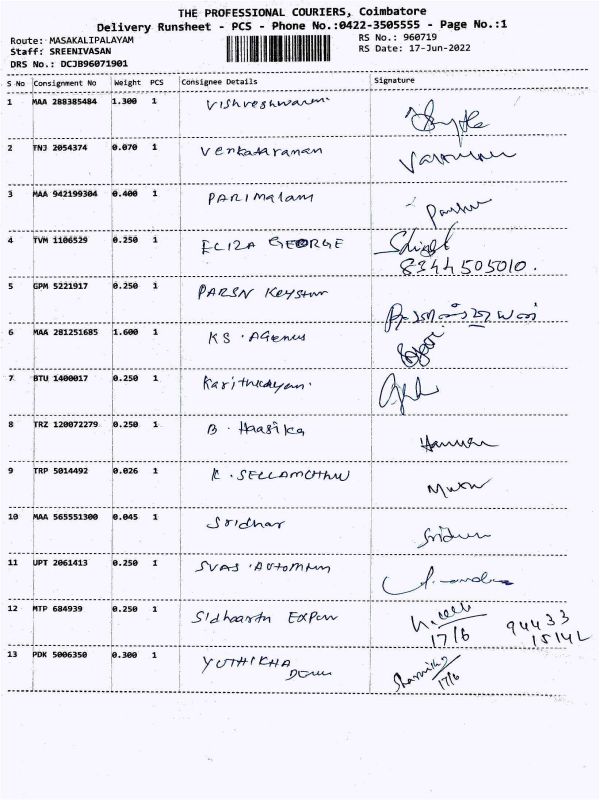 THE PROFESSIONAL COURIERS, Coimbatore
Delivery Runsheet - PCS - Phone No.:0422-3505555 - Page No.:1
Route: MASAKALIPALAYAM RS No.: 960719
Staff: SREENIVASAN RS Date: 17-Jun-2022
DRS No.: DCJB96071901
S No Consignment No Weight PCS Consignee Details Signature
1 MAA 288385484 1.300 1
2 TNJ 2054374 0.070 1 Venkataraman
3 MAA 942199304 0.400 1 PARIMalam
4 TVM 1106529 0.250 1 ELIZA GEORGE
8344505010.
5 GPM 5221917 0.250 1 PARSN
6 MAA 281251685 1.600 1 KS.
7 BTU 1400017 0.250 1
8 TRZ 120072279 0.250 1 B. Haasika
9 TRP 5014492 0.026 1 K. SELLAMUTHU
10 MAA 565551300 0.045 1 Sridhar
11 UPT 2061413 0.250 1 SVAS
12 MTP 684939 0.250 1 Sidhaarth
17/6 94433
15142
13 PDK 5006350 0.300 1 YUTHIKHA
17/6